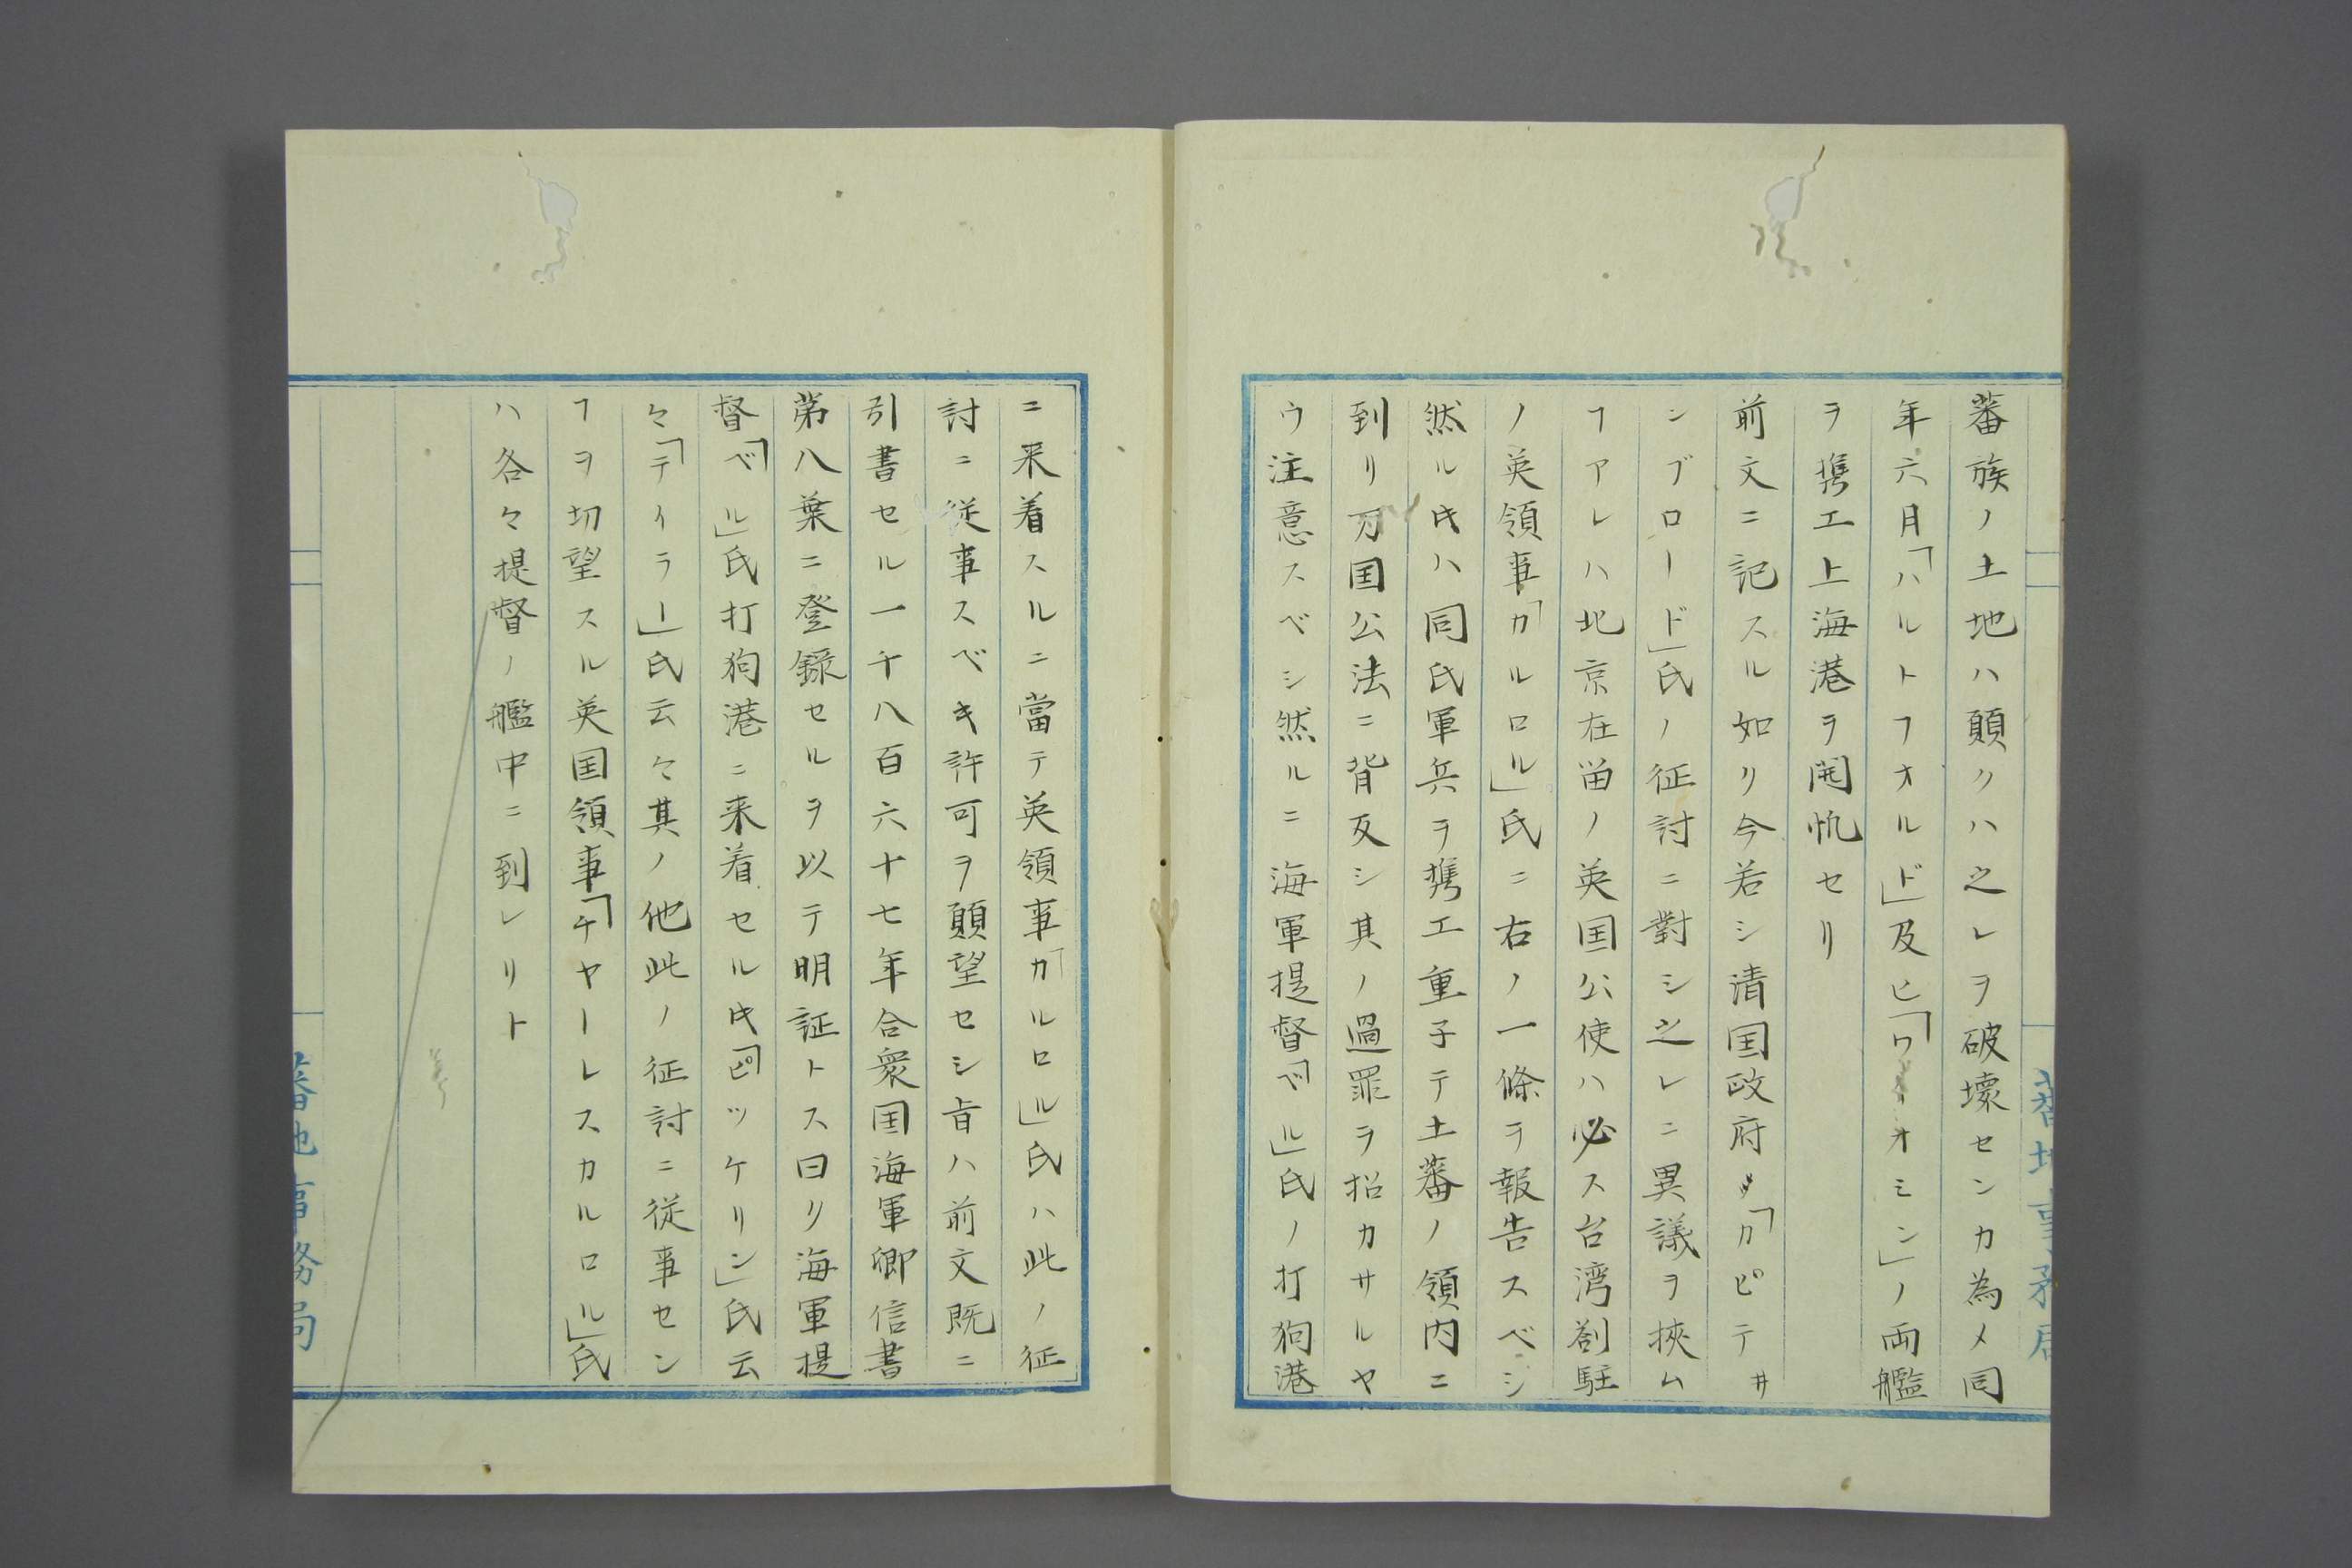 蕃族ノ土地ハ願クハ之レヲ破壊センカ為メ同
年六月「ハルトフオルド」及ヒ「ワイオミン」ノ両艦
ヲ携エ上海港ヲ開帆セリ
前文ニ記スル如リ今若シ清国政府「カピテサ
ンブロード」氏ノ征討ニ對シ之レニ異議ヲ挾ム
ヿアレハ北京在畄ノ英国公使ハ必ス台湾剳駐
ノ英領事「カルロル」氏ニ右ノ一條ヲ報告スベシ
然ル𪜈ハ同氏軍兵ヲ携エ重子テ土蕃ノ領内ニ
到リ万国公法ニ背反シ其ノ過罪ヲ招カサルヤ
ウ注意スベシ然ルニ海軍提督「ベル」氏ノ打狗港
ニ来着スルニ當テ英領事「カルロル」氏ハ此ノ征
討ニ従事スベキ許可ヲ願望セシ㫖ハ前文既ニ
引書セル一千八百六十七年合衆国海軍卿信書
第八葉ニ登録セルヲ以テ明証トス曰リ海軍提
督「ベル」氏打狗港ニ来着セル𪜈「ピツケリン」氏云
々「テイラー」氏云々其ノ他此ノ征討ニ従事セン
ヿヲ切望スル英国領事「チヤーレスカルロル」氏
ハ各々提督ノ艦中ニ到レリト
蕃地事務局